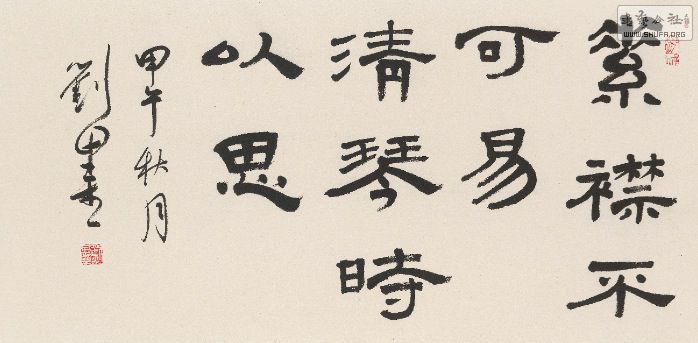 素襟不
可易
清琴時
以思
甲午秋月
劉
書藝公社
WWW.SHUFA.ORG